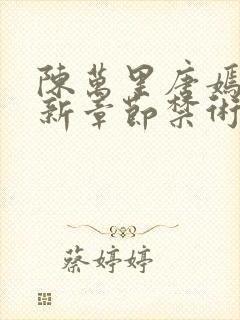 陳萬里唐嫣
新章節禁術
蔡婷婷